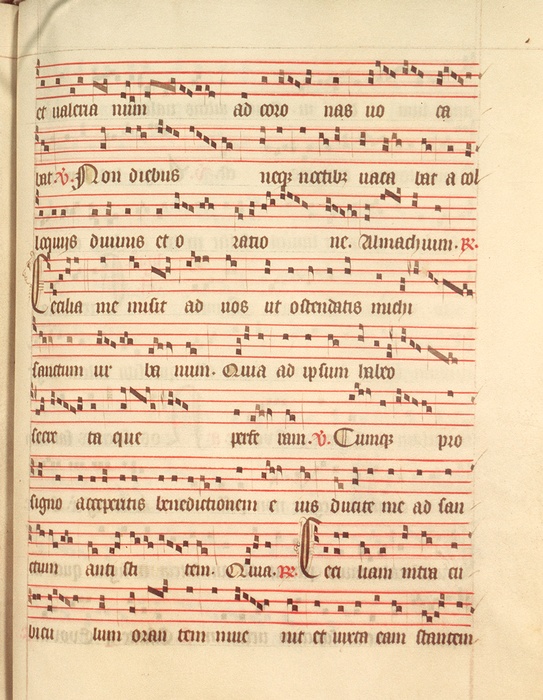 et valeria num ad coro nas vo ca
bat. v. Non diebus neqz noctibz vaca bat a col
loquijs diuinis et o ratio ne. Almachium. R.
Cecilia me misit ad vos ut ostendatis michi
sanctum ur ba num. Quia ad ipsum habeo
secre ta que perfe ram. v. Tuncqz pro
signo acceperitis benedictionem e ius ducite me ad san
ctum anti sti tem. Quia. R. Ceci liam intra cu
bicu lum oran tem inue nit et iuxta eam stantem